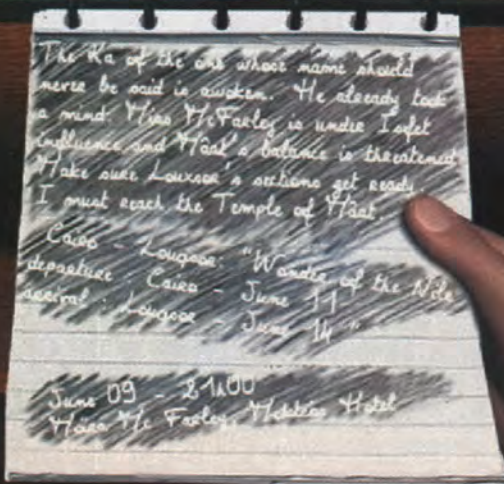 The Ka of the one whose name should
never be said is awoken. He already took
a mind. Miss McFarley is under Isfet
influence and Mâat's balance is threatened
Make sure Louxor's sections get ready.
I must reach the Temple of Mâat.
Cairo - Louxor: "Wonder of the Nile
departure Cairo - June 11
arrival: Louxor - June 14"
June 09 - 21h00
Miss Mc Farley, Hotel